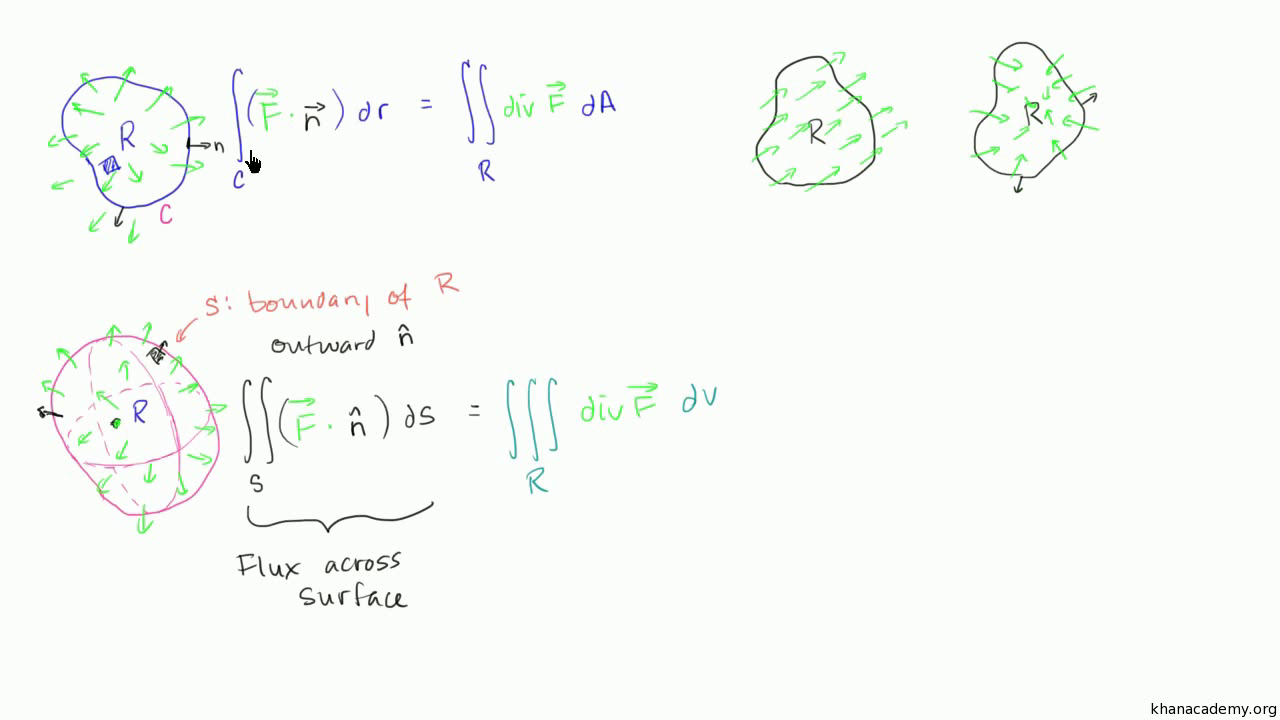 R
n
C
∫_C (F⃗ · n⃗) dr = ∬_R div F⃗ dA
R
R
S: boundary of R
outward n̂
R
∬_S (F⃗ · n̂) dS = ∭_R div F⃗ dV
Flux across
surface
khanacademy.org